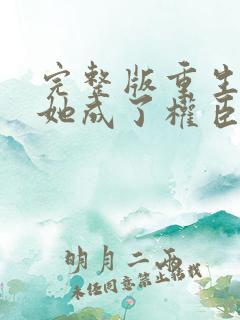 完整版重生
她成了权臣
明月二两
未经同意禁止转载